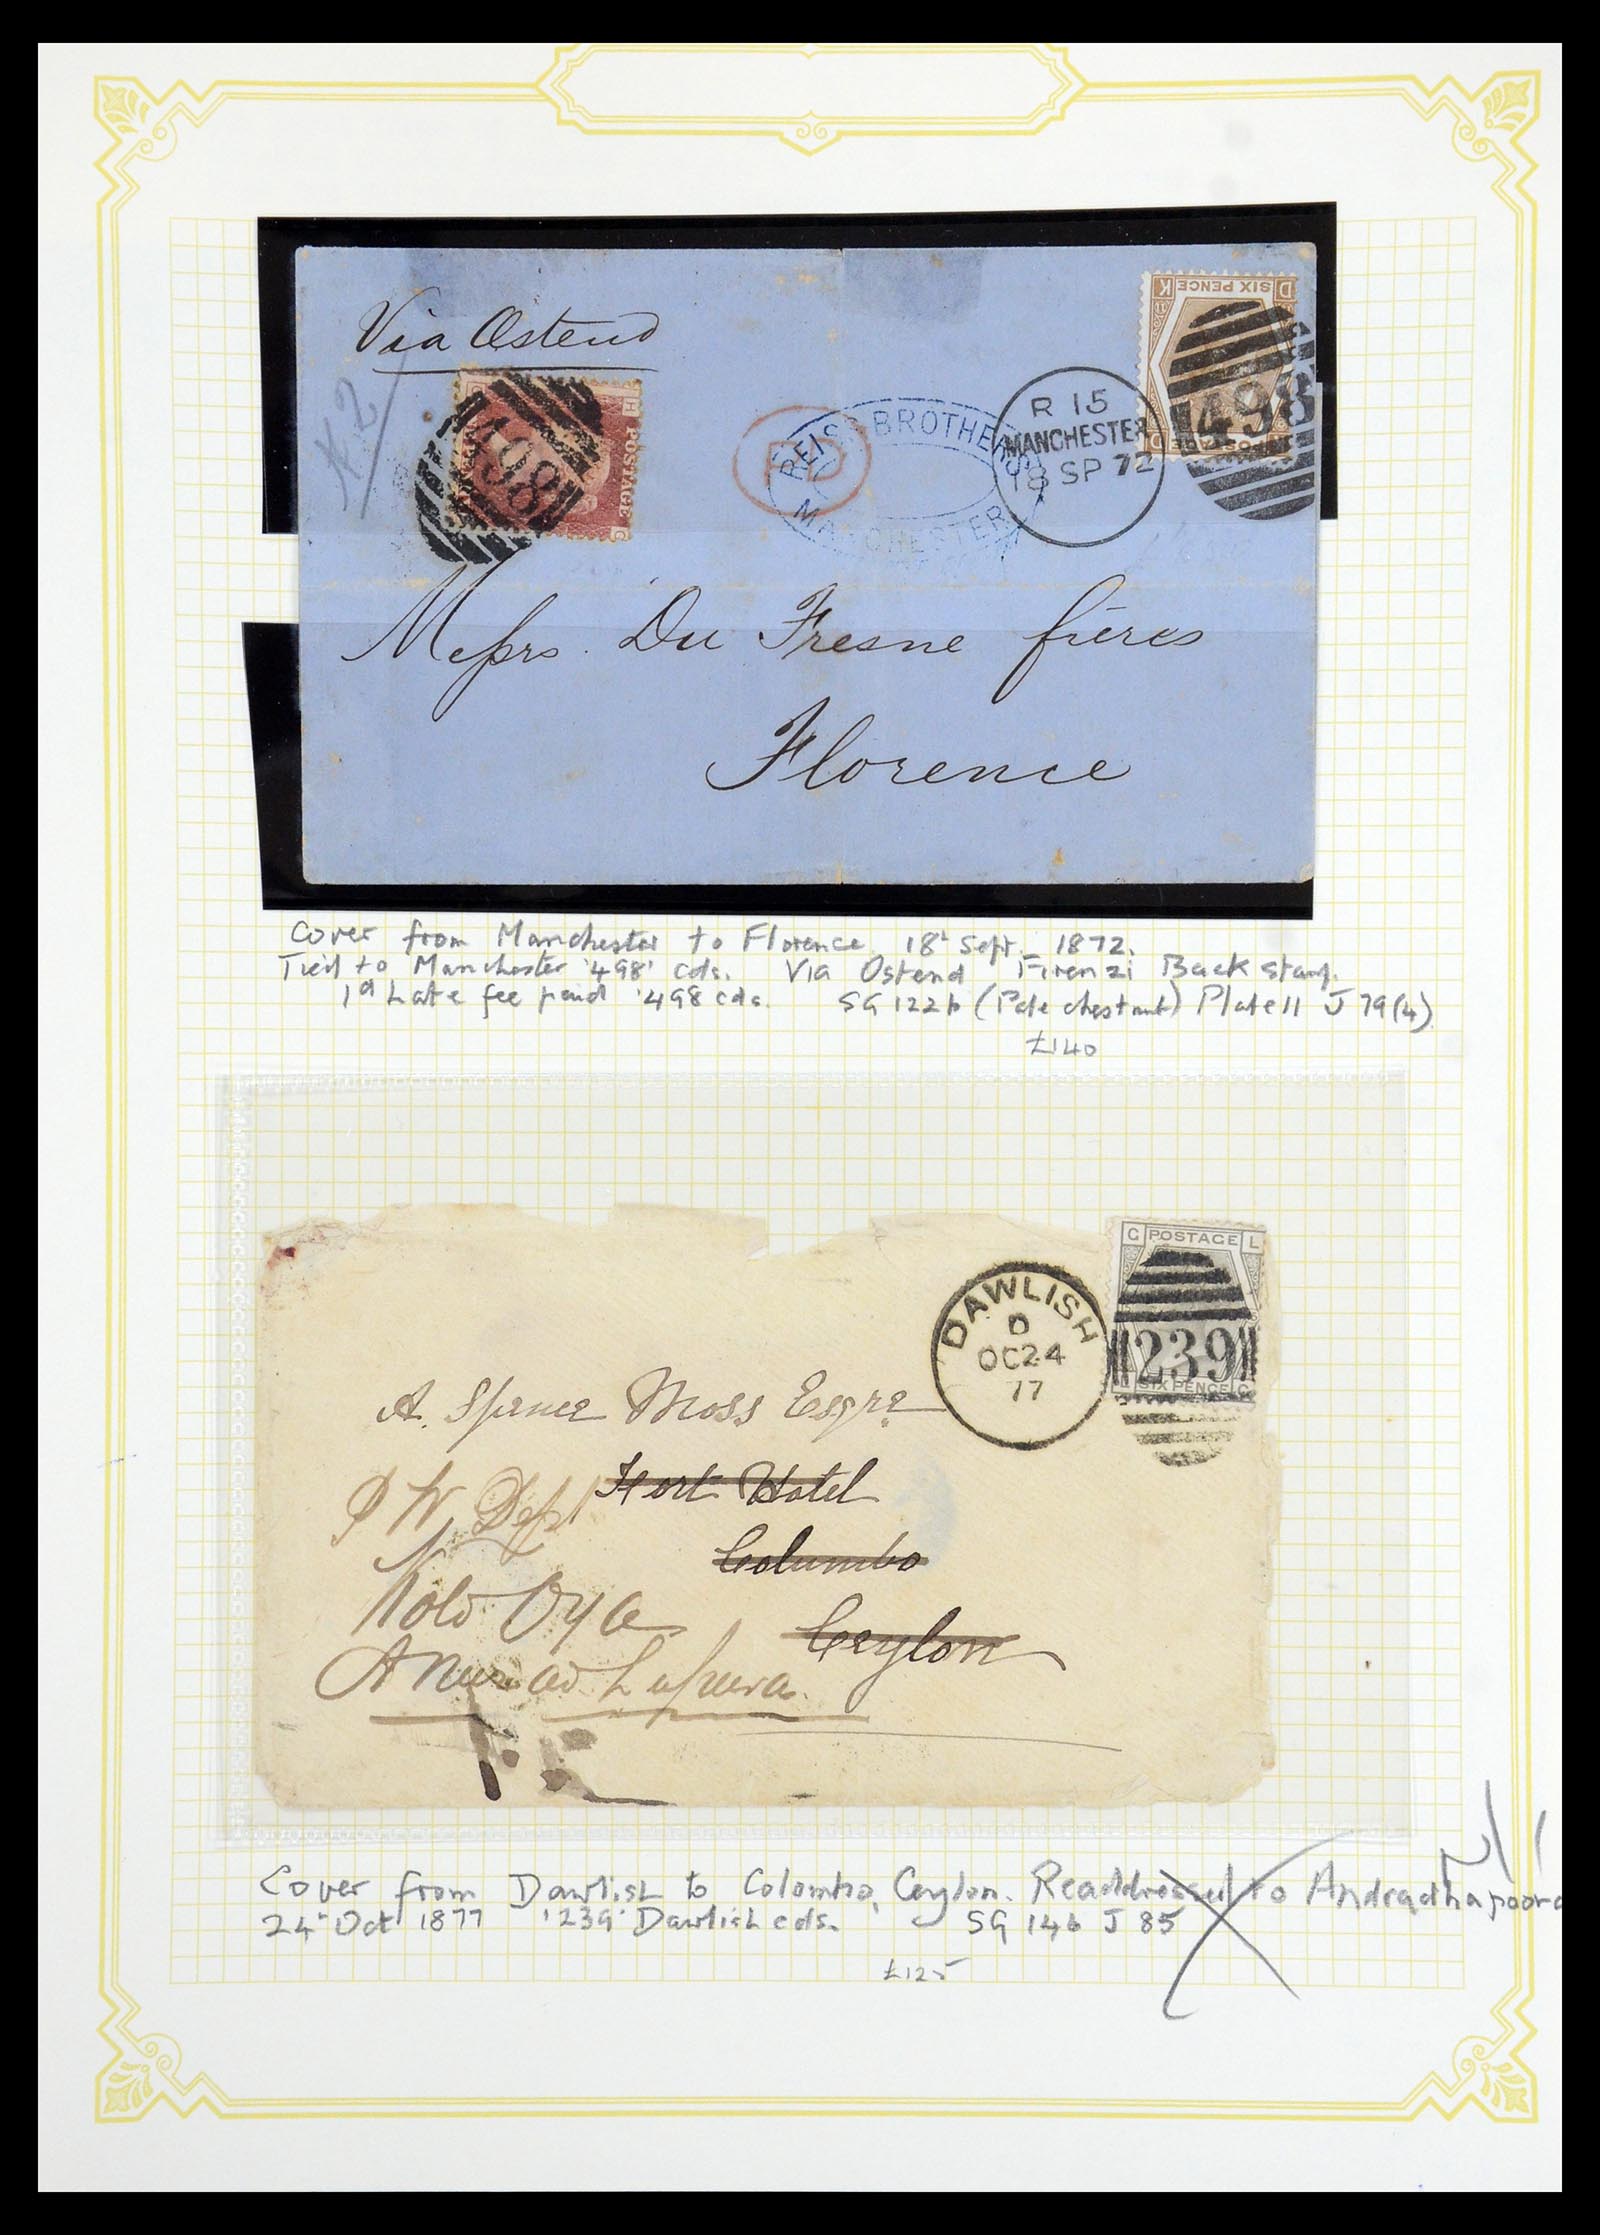 Via Ostend
K2
H POSTAGE C
498
PD
REISS BROTHERS
MANCHESTER
R 15
MANCHESTER
18 SP 72
D SIX PENCE K
11
498
Messrs. Du Fresne frères
Florence
Cover from Manchester to Florence 18t Sept. 1872.
Tied to Manchester '498' cds. Via Ostend Firenzi Back stamp.
1d Late fee paid '498 cds. SG 122b (Pale chestnut) Plate 11 J 79(4)
£140
G POSTAGE L
239
SIX PENCE G
DAWLISH
D
OC24
77
A. Spence Moss Esqre
Fort Hotel
Columbo
Ceylon
P W Dept
Kolo Oya
Cover from Dawlish to Colombo, Ceylon. Readdressed to Andradhapoora
24t Oct 1877 '239' Dawlish cds. SG 146 J 85
£125